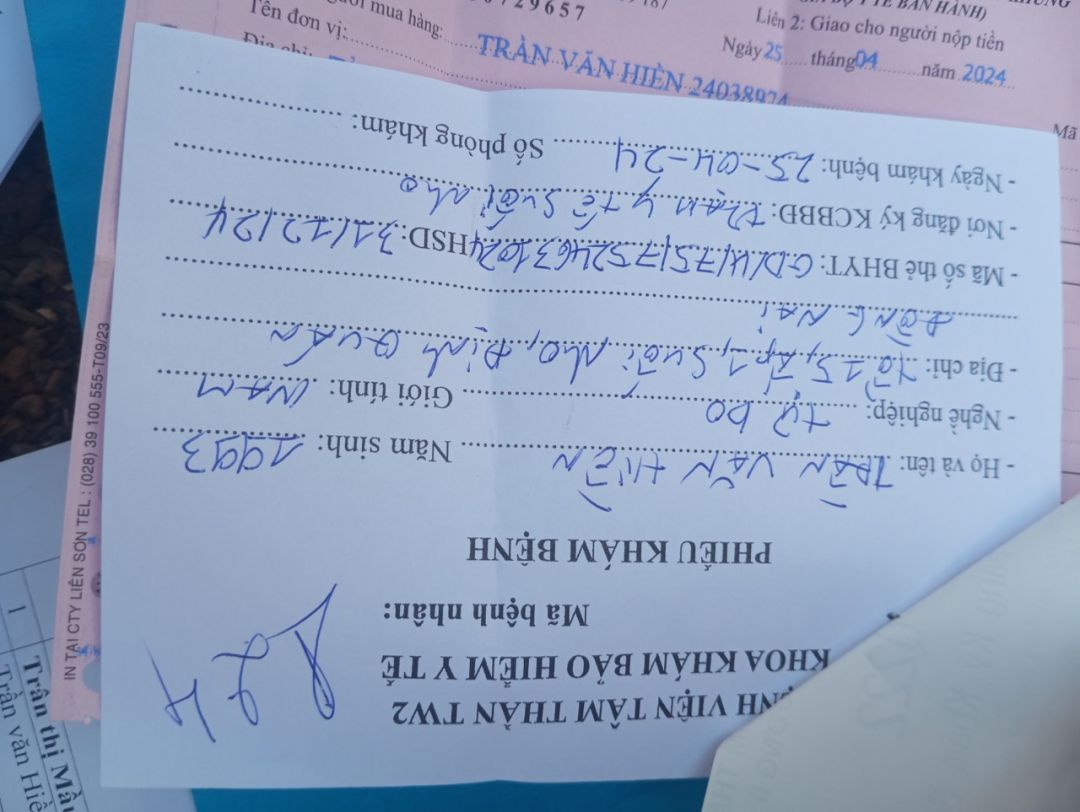 BỆNH VIỆN TÂM THẦN TW2
KHOA KHÁM BẢO HIỂM Y TẾ
Mã bệnh nhân:
PHIẾU KHÁM BỆNH
- Họ và tên: TRẦN VĂN HIỀN Năm sinh: 1993
- Nghề nghiệp: TỰ DO Giới tính: NAM
- Địa chỉ: Tổ 15, Ấp 1, Suối Nho, ĐỊNH QUÁN
ĐỒNG NAI
- Mã số thẻ BHYT: GD/4/75/7524631024 HSD: 31/12/24
- Nơi đăng ký KCBBĐ: TRẠM y tế Suối Nho
- Ngày khám bệnh: 25-04-24 Số phòng khám:
BAN HÀNH)
Liên 2: Giao cho người nộp tiền
Ngày 25 tháng 04 năm 2024
29657
mua hàng:
Tên đơn vị:
TRẦN VĂN HIỀN 24038924
Địa chỉ:
Mã
IN TẠI CTY LIÊN SƠN TEL : (028) 39 100 555-T09/23
1
Trần thị
Trần văn